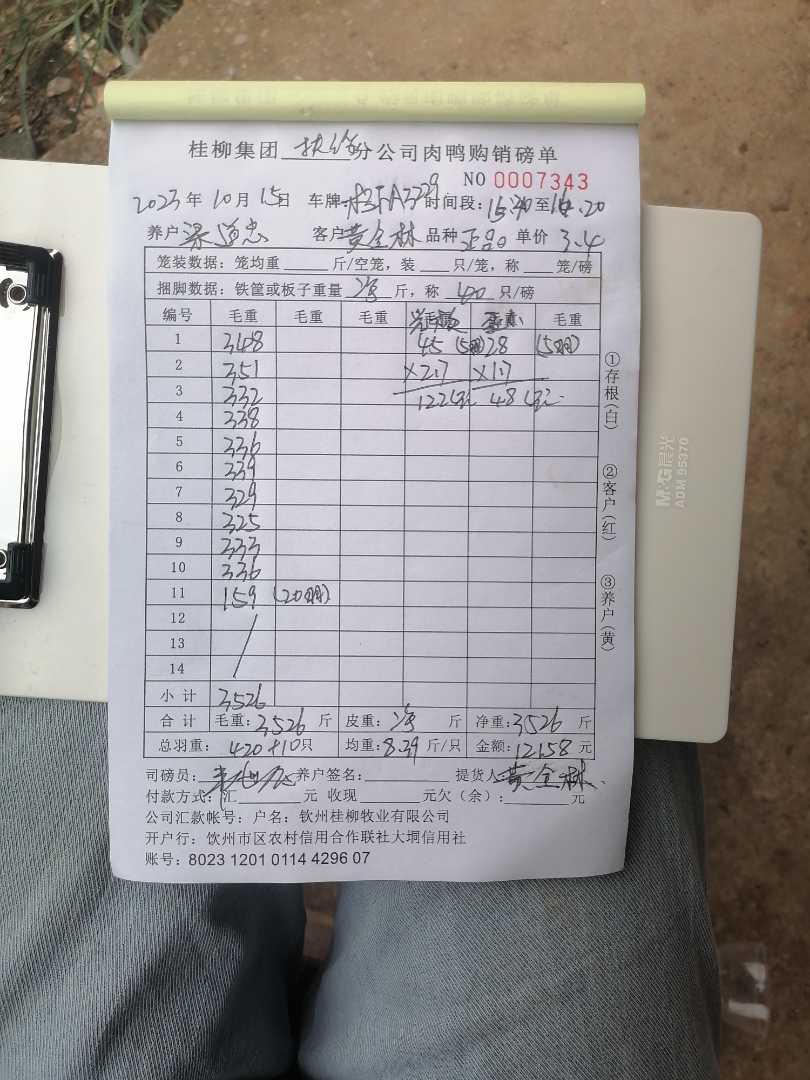 桂柳集团 分公司肉鸭购销磅单
NO 0007343
2023年10月15日 车牌 A3229 时间段: 至 .20
养户 梁道忠 客户 黄全林 品种 正品 单价 3.4
笼装数据：笼均重 斤/空笼，装 只/笼，称 笼/磅
捆脚数据：铁筐或板子重量 净 斤，称 40 只/磅
编号 毛重 毛重 毛重 毛重
1 348 45 (5只) 28 (5只)
2 351 ×2.7 ×1.7
3 332 122 48
4 338
5 336
6 339
7 329
8 325
9 333
10 336
11 159 (20只)
12
13
14
小计 3526
合计 毛重：3526 斤 皮重：净 斤 净重：3526 斤
总羽重：420+10只 均重：8.39 斤/只 金额：12158 元
司磅员： 养户签名： 提货人 黄全林
付款方式：汇 元 收现 元欠（余）： 元
公司汇款帐号：户名：钦州桂柳牧业有限公司
开户行：钦州市区农村信用合作联社大垌信用社
账号：8023 1201 0114 4296 07
①存根(白)
②客户(红)
③养户(黄)
M&G晨光
ADM 95370